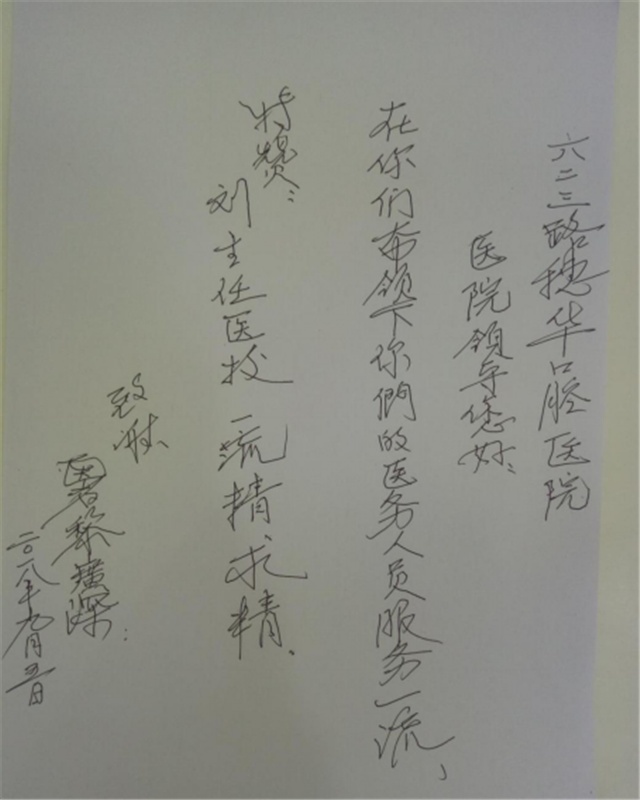 六二三路穗华口腔医院
医院领导您好：
在你们带领下你們的医务人员服务一流，
特赞：
刘主任医技一流精求精、
致
二〇一八年九月五日